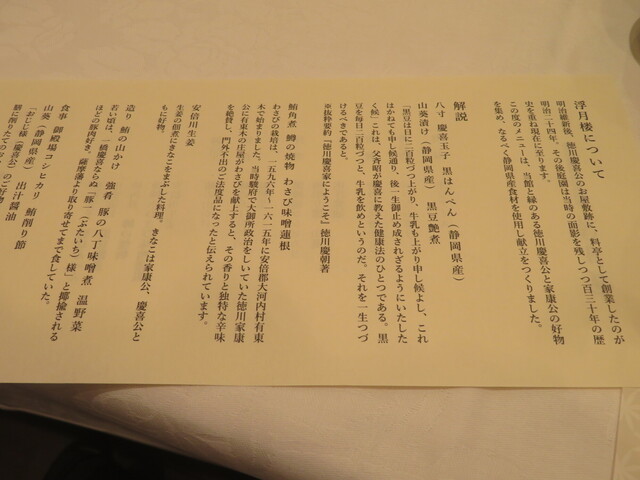 浮月楼について
明治維新後、徳川慶喜公のお屋敷跡に、料亭として創業したのが
明治二十四年、その後庭園は当時の面影を残しつつ百三十年の歴
史を重ね現在に至ります。
この度のメニューは、当館と縁のある徳川慶喜公と家康公の好物
を集め、なるべく静岡県産食材を使用し献立をつくりました。
解説
八寸 慶喜玉子 黒はんぺん（静岡県産）
山葵漬け（静岡県産） 黒豆艶煮
「黒豆は日に二百粒づつ上がり、牛乳も上がり申し候よし、これ
はかねても申し候通り、後一生御止め成されざるようにいたした
く候」これは、父斉昭が慶喜に教えた健康法のひとつである。黒
豆を毎日二百粒づつと、牛乳を飲めというのだ。それを一生つづ
けるべきであると。
※抜粋要約「徳川慶喜家にようこそ」徳川慶朝著
鮪角煮 鱒の焼物 わさび味噌蓮根
わさび栽培は、一五九六年〜一六一五年に安倍郡大河内村有東
木で始まりました。当時駿府で大御所政治をしいていた徳川家康
公に有東木の庄屋がわさびを献上すると、その香りと独特な辛味
を絶賛し、門外不出のご法度品になったと伝えられています。
安倍川生姜
生姜の佃煮にきなこをまぶした料理。きなこは家康公、慶喜公と
もに好物。
造り 鮪の山かけ 強肴 豚の八丁味噌煮 温野菜
若い頃は、一橋慶喜ならぬ「豚一（ぶたいち）様」と揶揄される
ほどの豚肉好き。薩摩藩より取り寄せてまで食していた。
食事 御殿場コシヒカリ 鮪削り節
山葵（静岡県産） 出汁醤油
「おじじ様（慶喜公）のご好物